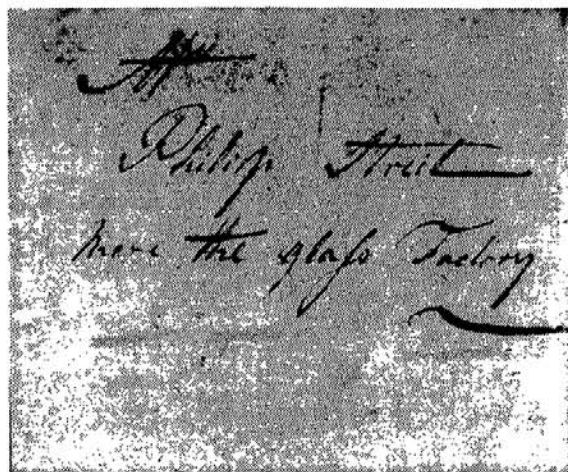 Philip Street
near the glaſs Factory